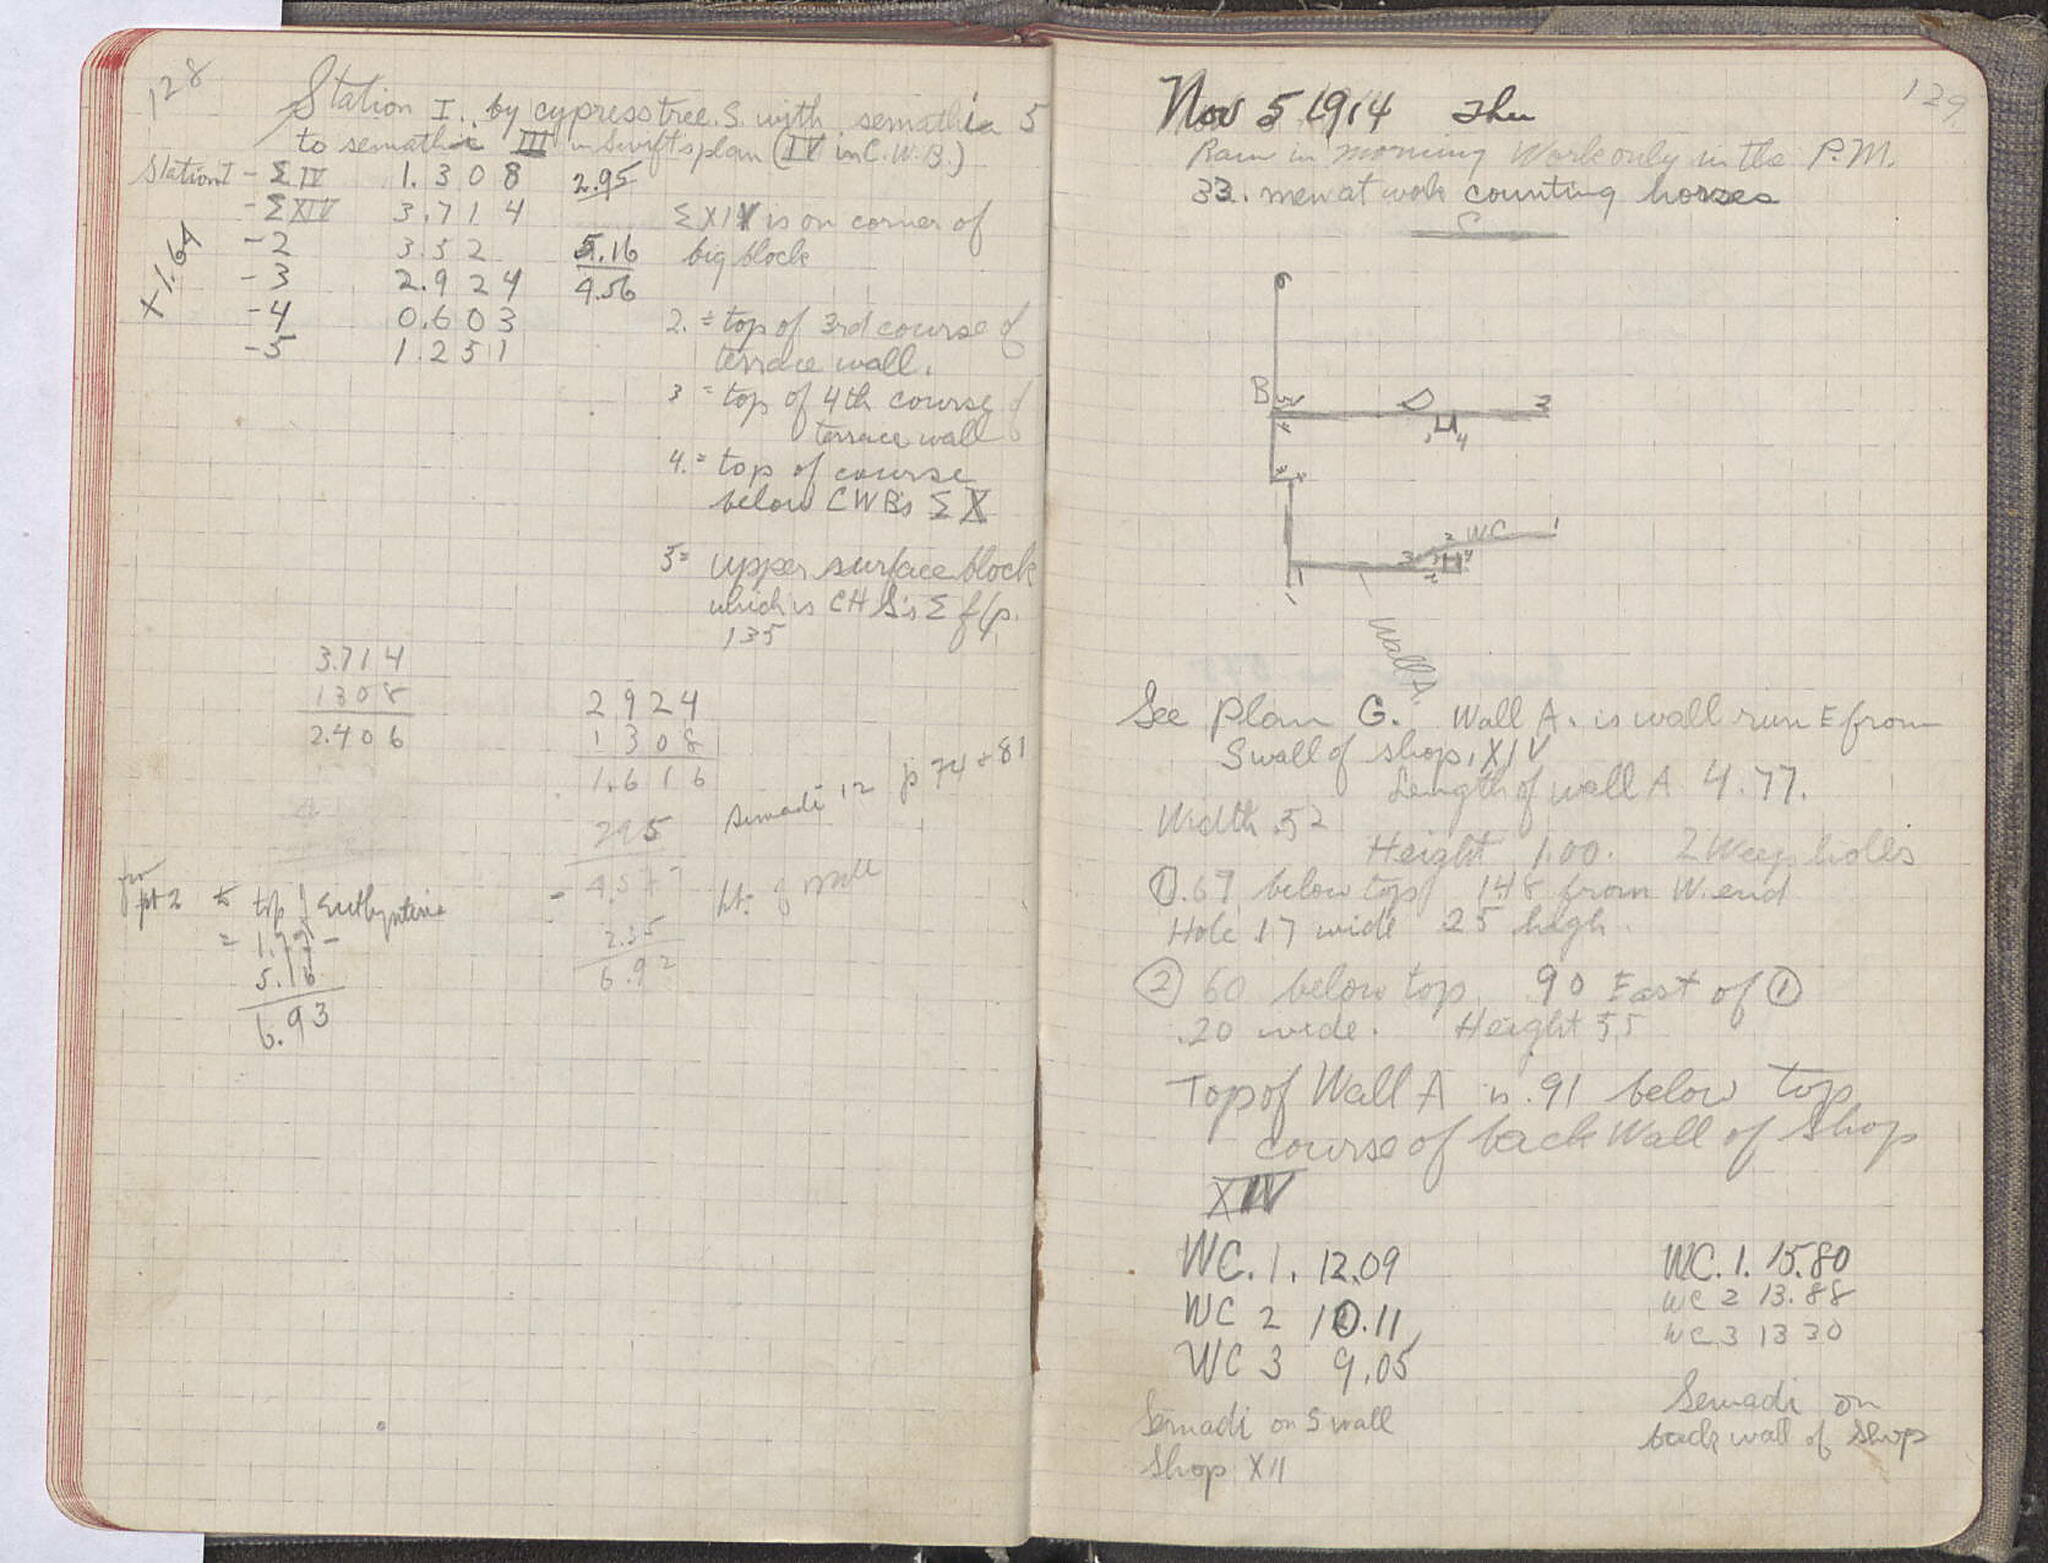 128
Station I. by cypress tree. S. with semathia 5
to semathi III in Swift's plan (IV in C.W.B.)
Station I - Σ IV 1.308 2.95
- Σ XIV 3.714
Σ XIV is on corner of
big block
X 1.64
- 2 3.52 5.16
- 3 2.924 4.56
- 4 0.603
- 5 1.251
2. = top of 3rd course of
terrace wall.
3 = top of 4th course of
terrace wall
4. = top of course
below CWB's Σ X
5 = upper surface block
which is CHS's Σ f p.
135
3.714
1308
2.406
2924
1308
1.616
295
4.577 ht. of wall
2.35
6.92
Semadi 12 p 74 + 81
for pt 2 to top of Euthynteria
= 1.77 -
5.16
6.93
129
Nov 5 1914 Thu
Rain in morning Work only in the P.M.
33. men at work counting horses
C
B D 3
4
2 WC 1
3
Wall A.
See Plan G. Wall A. is wall run E from
S wall of shop, XIV
Length of wall A 4.77.
Width .52
Height 1.00. 2 Weep holes
① .67 below top 1.48 from W. end
Hole .17 wide .25 high.
② 60 below top, 90 East of ①
.20 wide. Height 55
Top of Wall A is .91 below top
course of back Wall of Shop
XIV
WC. 1. 12.09
WC 2 10.11
WC 3 9.05
Semadi on S wall
Shop XII
WC. 1. 15.80
WC 2 13.88
WC 3 13 30
Semadi on
back wall of Shop